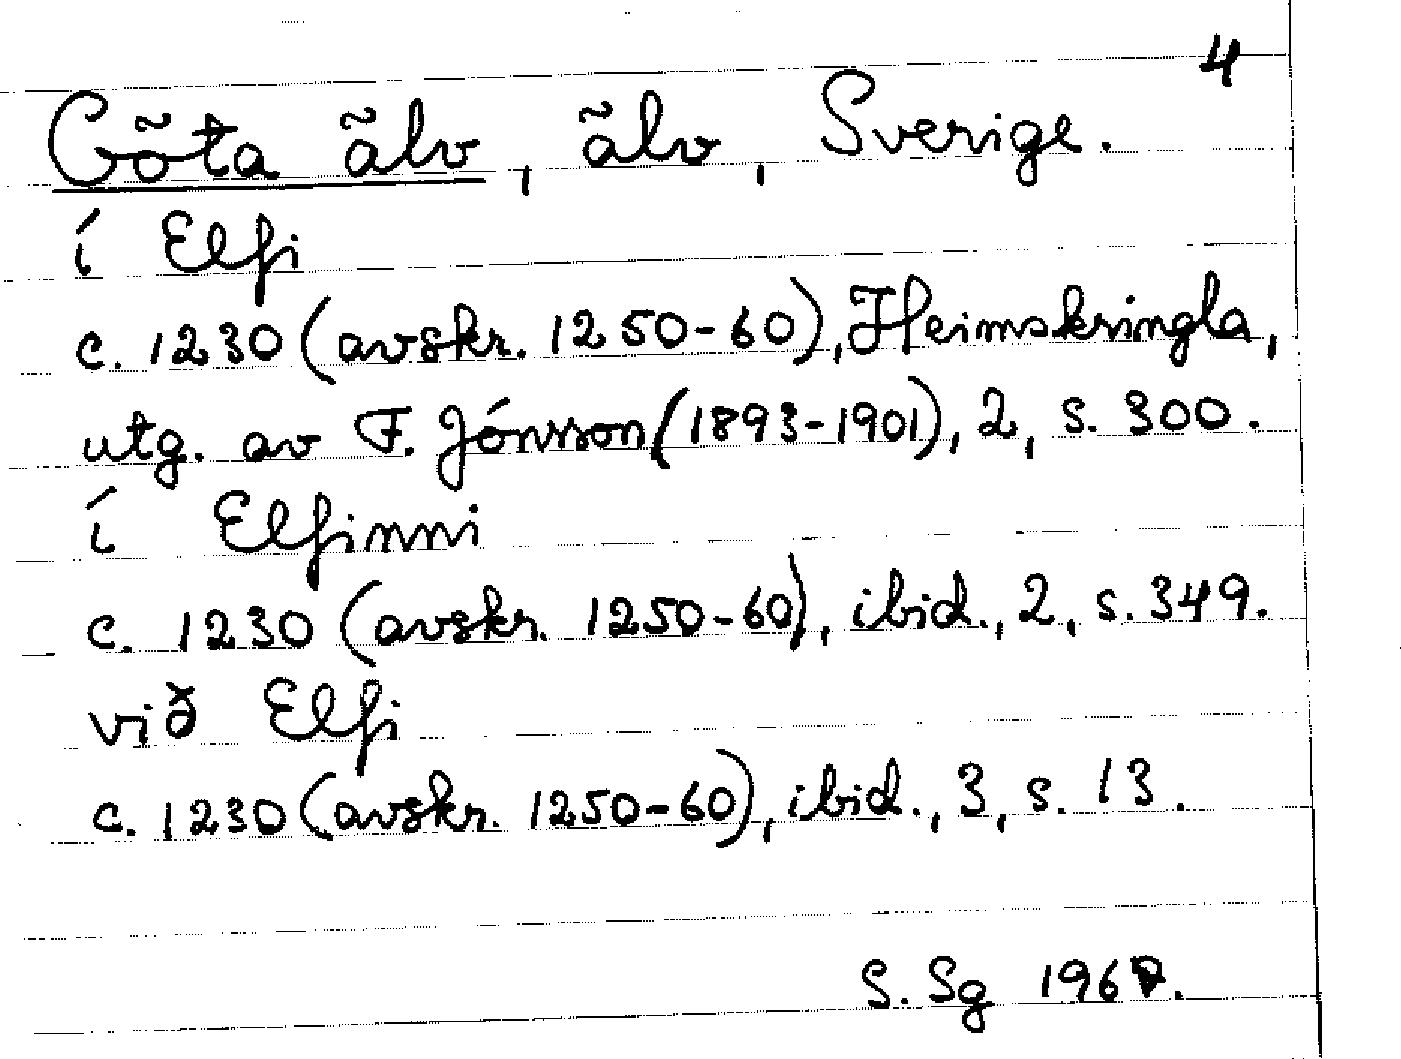 4
Göta älv, älv, Sverige.
í Elfi
c. 1230 (avskr. 1250-60), Heimskringla,
utg. av F. Jónsson (1893-1901), 2, s. 300.
í Elfinni
c. 1230 (avskr. 1250-60), ibid., 2, s. 349.
við Elfi
c. 1230 (avskr. 1250-60), ibid., 3, s. 13.
S. Sg